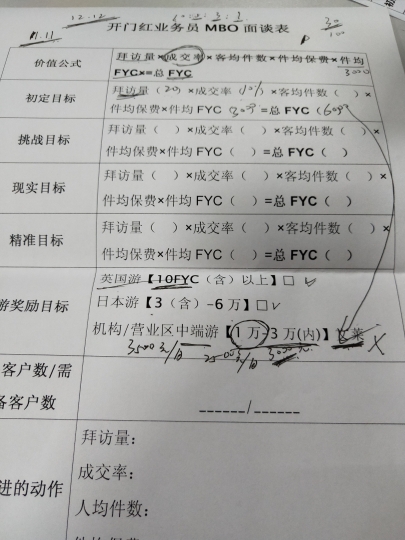 12.12
11.11
30
100
开门红业务员 MBO 面谈表
价值公式
拜访量×成交率×客均件数×件均保费×件均
FYC×=总 FYC
3000
初定目标
拜访量（20）×成交率（10%）×客均件数（ ）×
件均保费×件均 FYC（ ）=总 FYC（6000
挑战目标
拜访量（ ）×成交率（ ）×客均件数（ ）×
件均保费×件均 FYC（ ）=总 FYC（ ）
现实目标
拜访量（ ）×成交率（ ）×客均件数（ ）×
件均保费×件均 FYC（ ）=总 FYC（ ）
精准目标
拜访量（ ）×成交率（ ）×客均件数（ ）×
件均保费×件均 FYC（ ）=总 FYC（ ）
游奖励目标
英国游【10FYC（含）以上】□ ✓
日本游【3（含）-6 万】□ ✓
机构/营业区中端游【1 万-3 万(内)】
3500元/月 2500元/月 3000元
客户数/需
备客户数
______/______
进的动作
拜访量：
成交率：
人均件数：